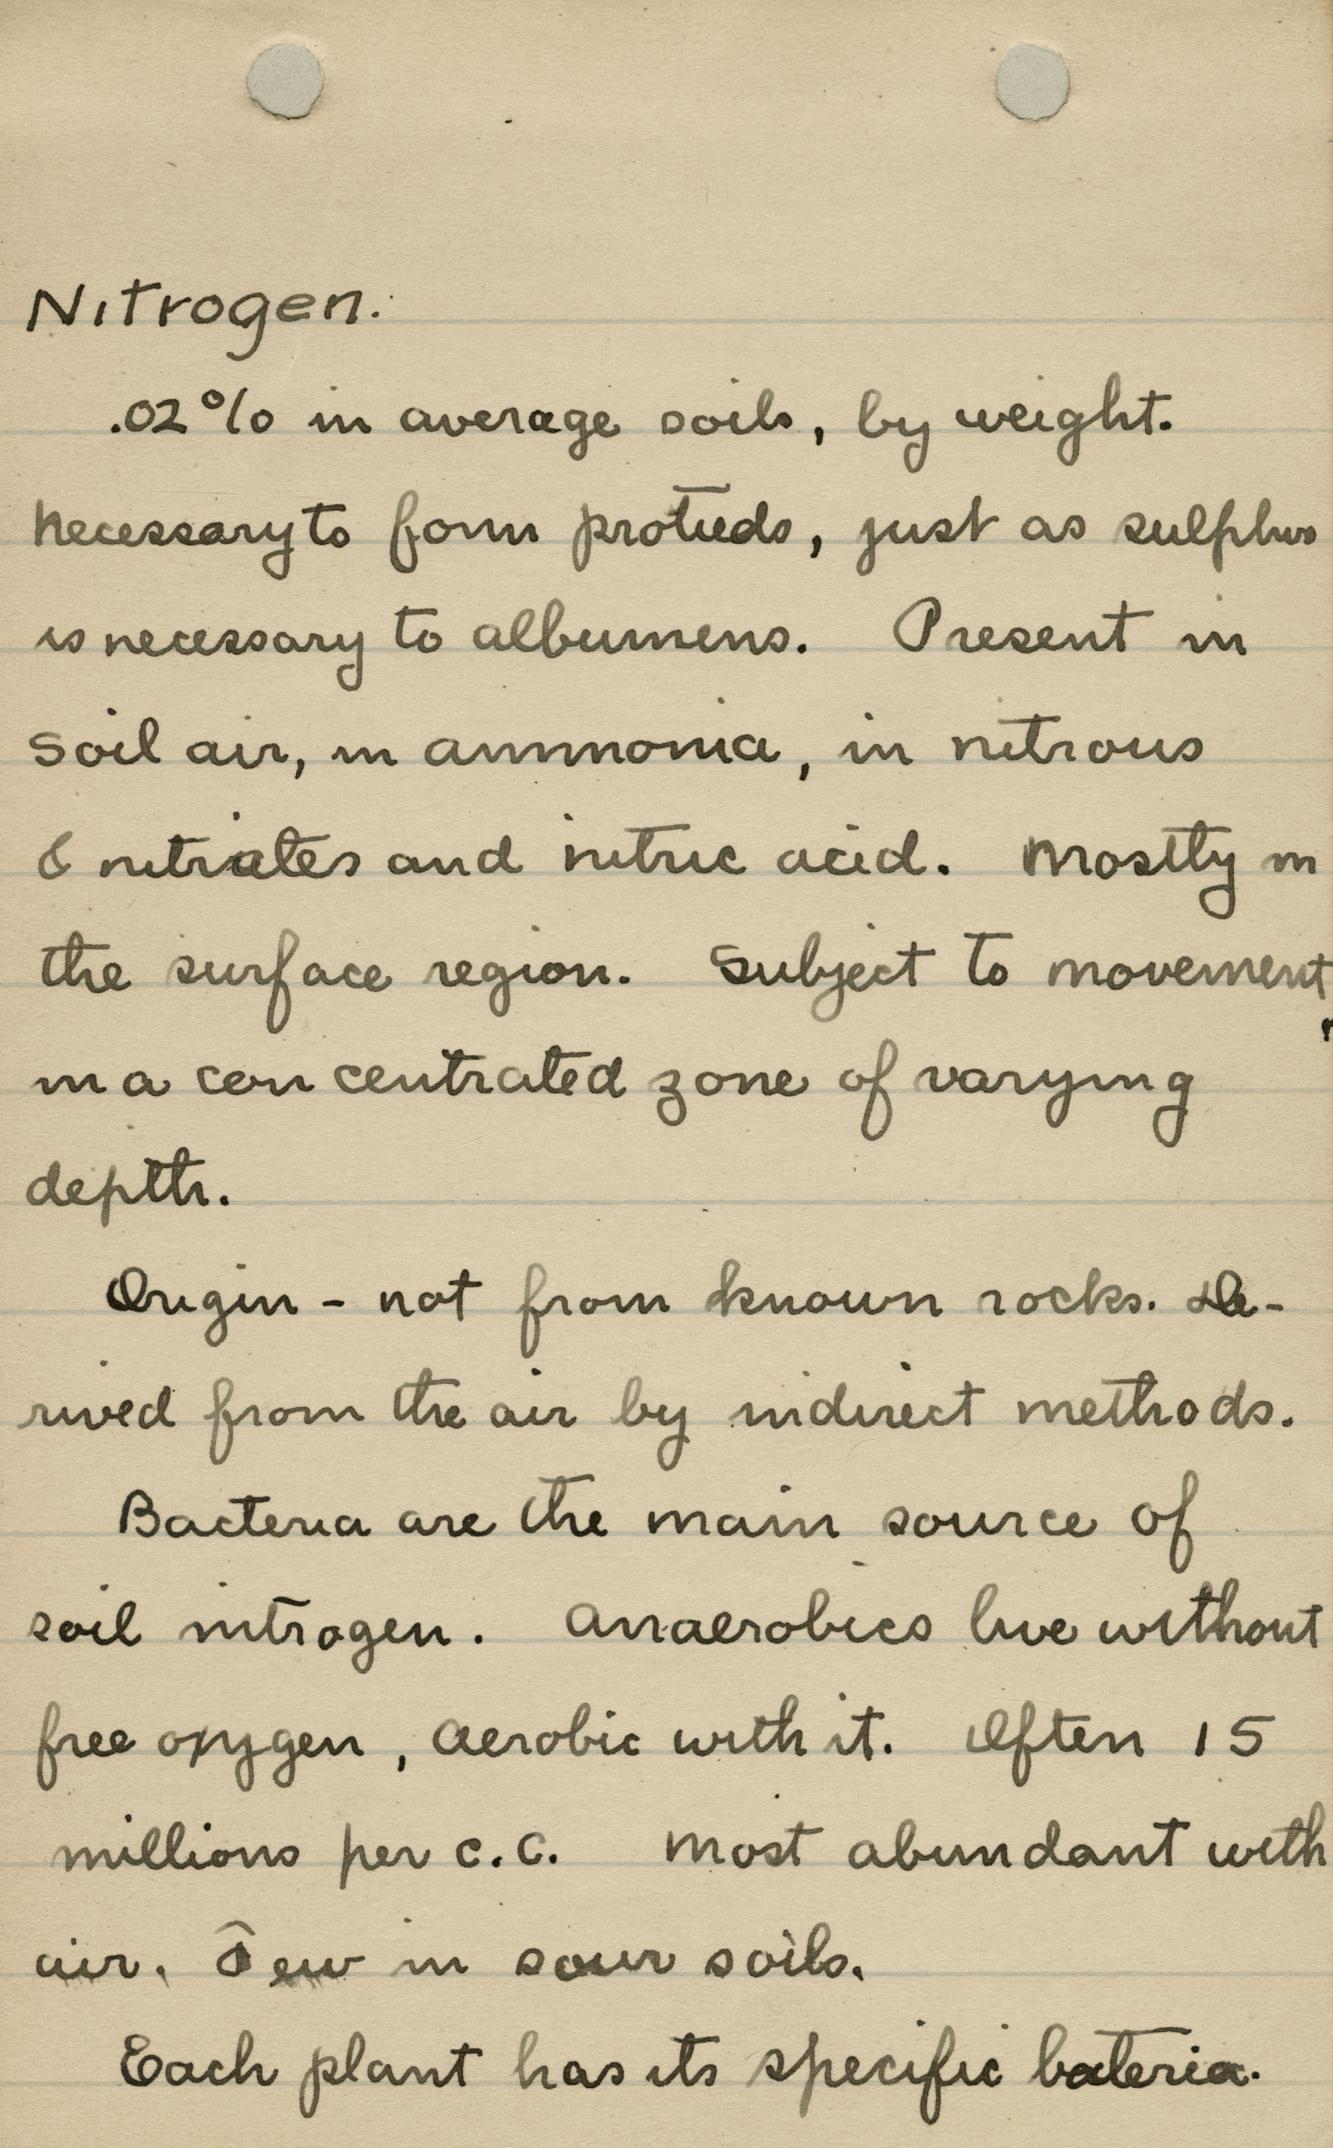 Nitrogen.
.02% in average soils, by weight.
Necessary to form proteids, just as sulphur
is necessary to albumens. Present in
soil air, in ammonia, in nitrous
& nitrates and nitric acid. Mostly in
the surface region. Subject to movement
in a concentrated zone of varying
depth.
Origin - not from known rocks. De-
rived from the air by indirect methods.
Bacteria are the main source of
soil nitrogen. Anaerobics live without
free oxygen, Aerobic with it. Often 15
millions per c.c. Most abundant with
air. Few in sour soils.
Each plant has its specific bateria.